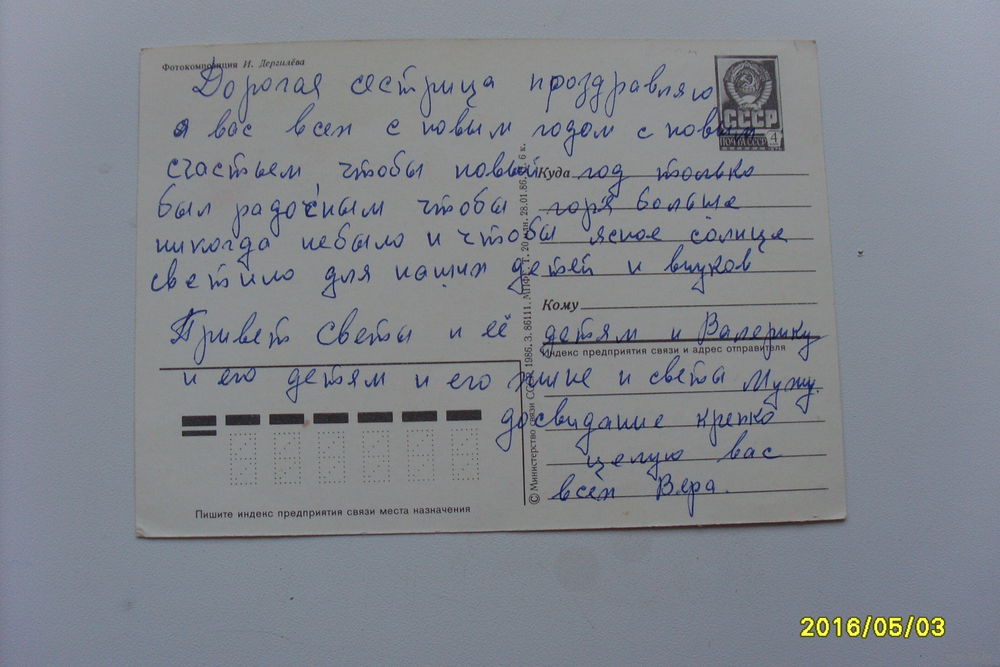 Фотокомпозиция И. Дергилёва
Дорогая сестрица проздравляю
я вас всех с новым годом с новым
счастьем чтобы новый год только
был радосным чтобы горя больше
никогда небыло и чтобы ясное солнце
светило для наших детей и внуков
Привет Светы и её детям и Валерику
и его детям и его жшке и светы Мужу.
досвидание крепко
целую вас
всех Вера.
СССР
ПОЧТА СССР 4
Куда
Кому
Индекс предприятия связи и адрес отправителя
© Министерство связи СССР, 1986. З. 86111. МПФГ. Т. 20 млн. 28.01.86. Ц. 6 к.
Пишите индекс предприятия связи места назначения
2016/05/03